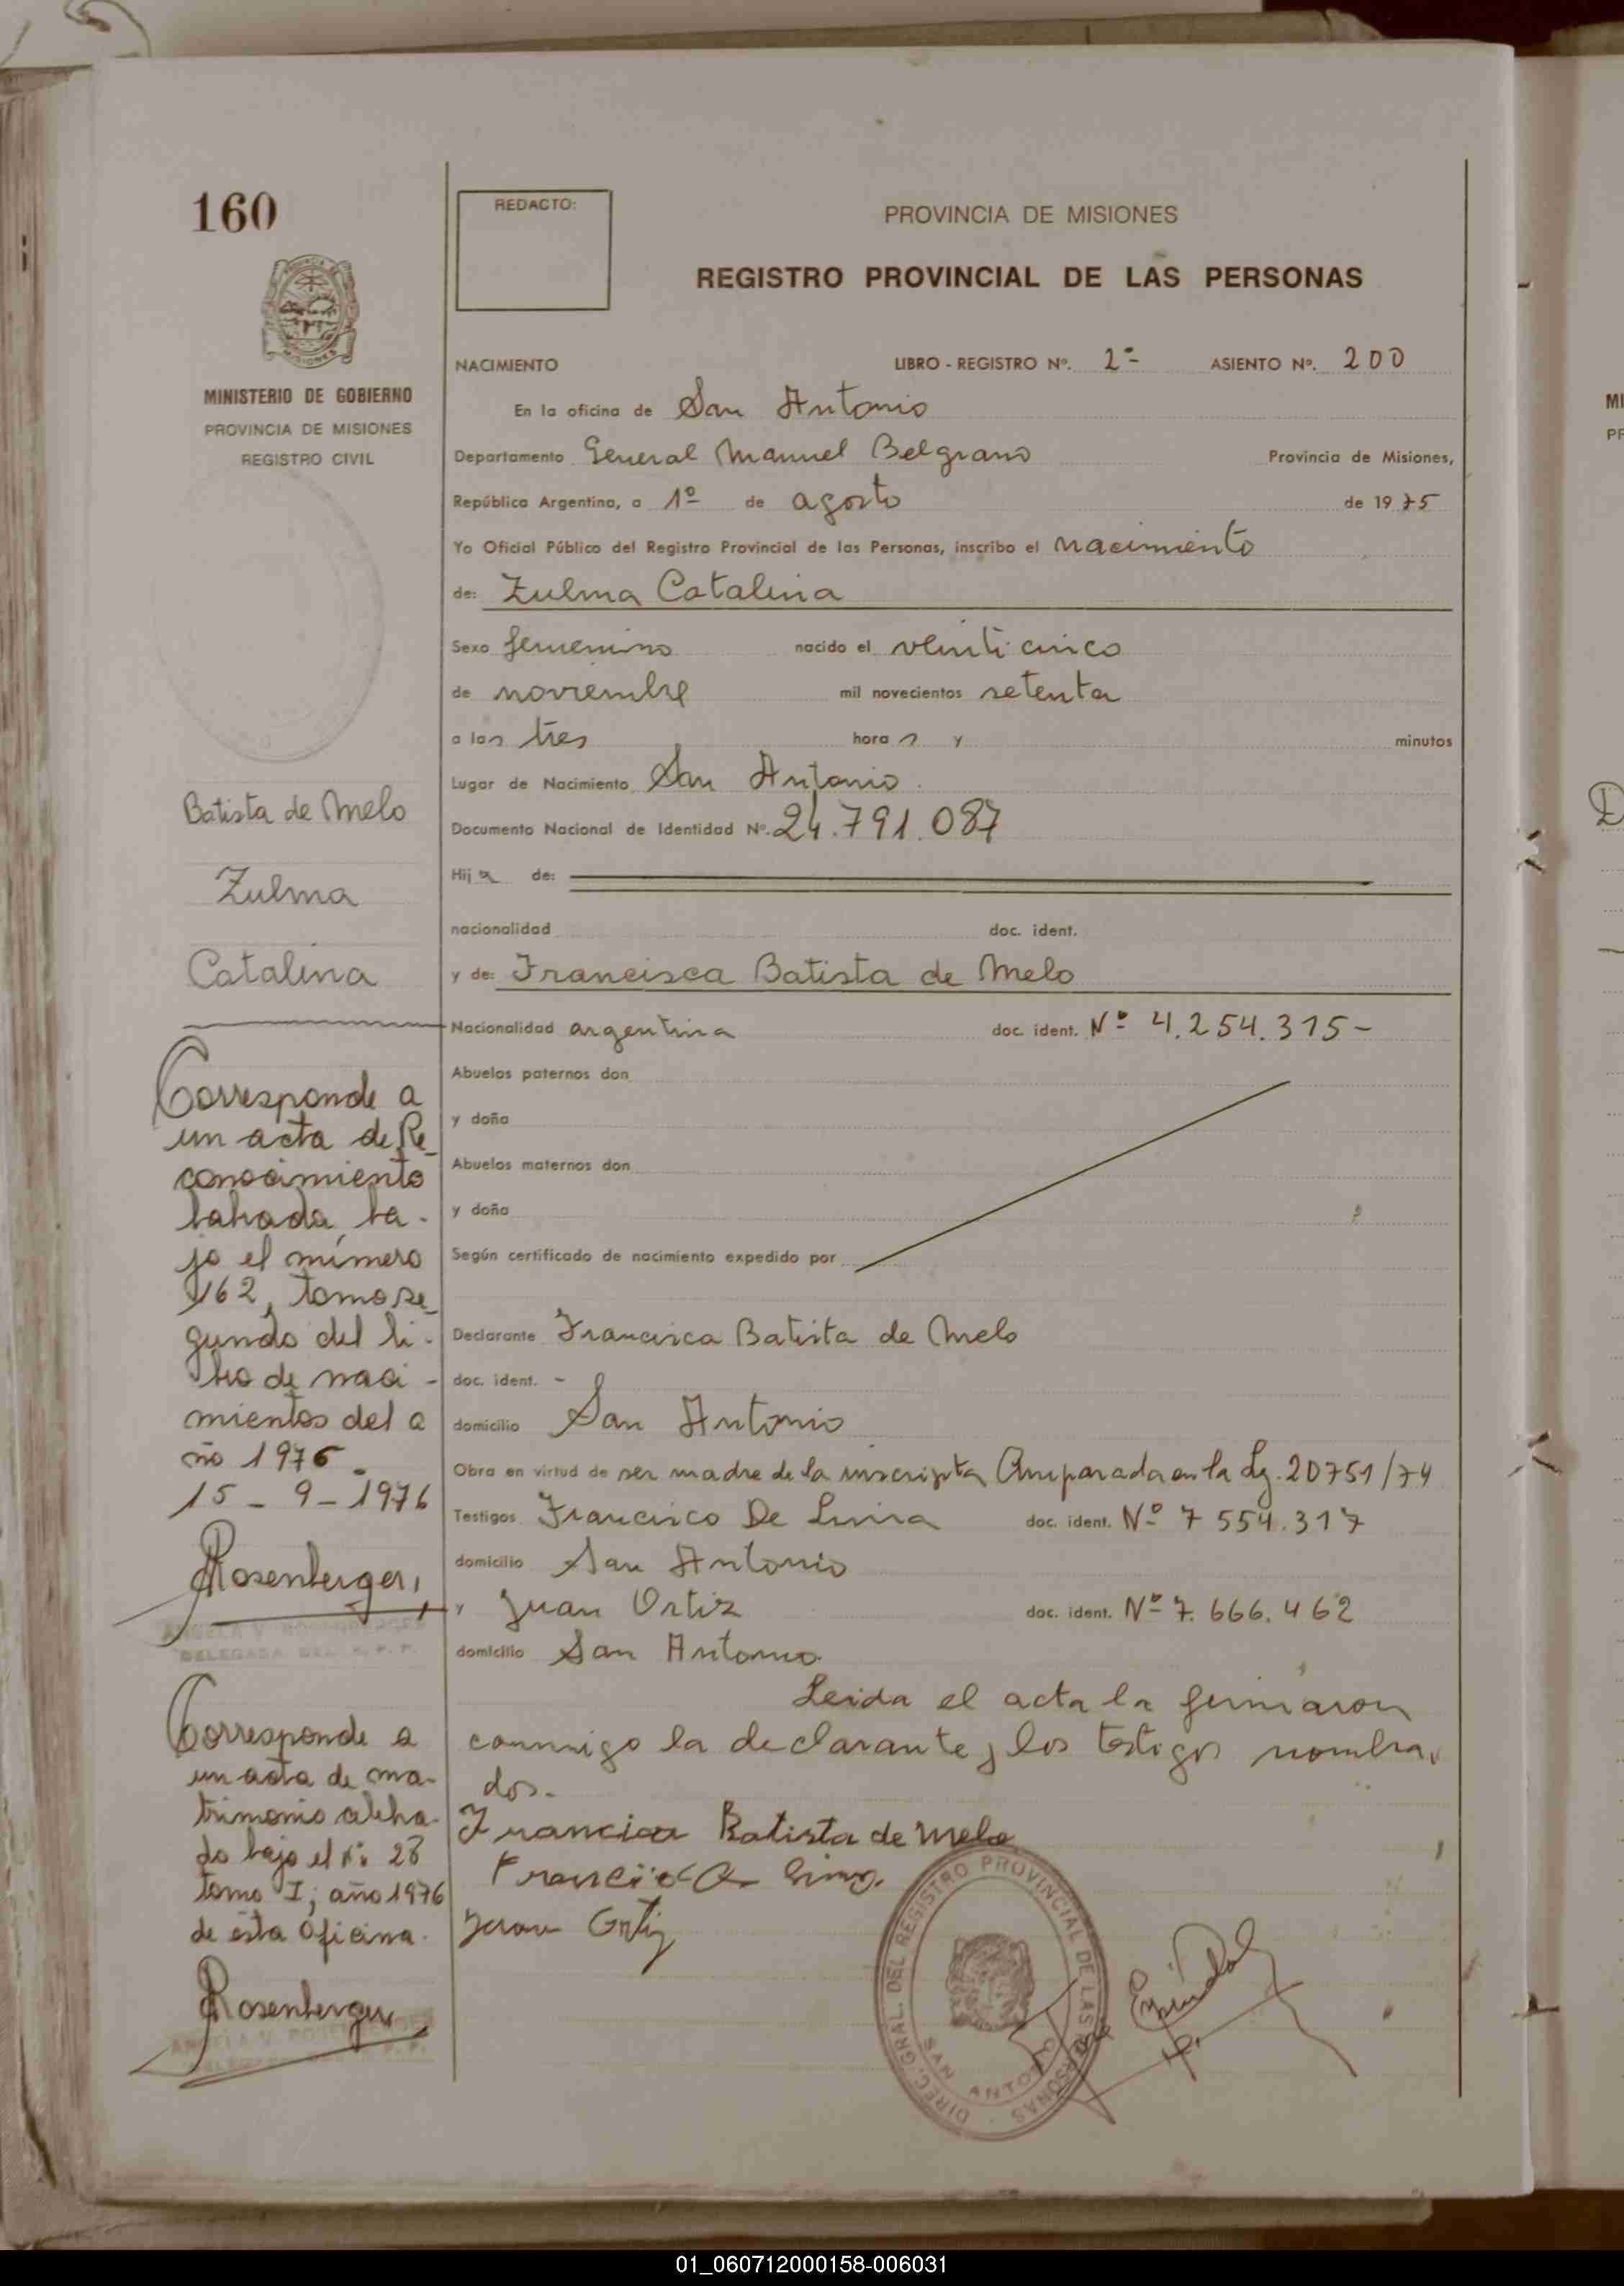 160
MINISTERIO DE GOBIERNO
PROVINCIA DE MISIONES
REGISTRO CIVIL
Batista de Melo
Zulma
Catalina
Corresponde a
un acta de Re_
conocimiento
labrada ba-
jo el número
162, tomo se_
gundo del li-
bro de naci-
mientos del a
ño 1976.
15-9-1976
Rosenberger
ANGELA V. ROSENBERGER
DELEGADA DEL R. P. P.
Corresponde a
un acta de ma-
trimonio celebra-
do bajo el Nº 28
tomo I; año 1976
de ésta Oficina.
Rosenberger
ANGELA V. ROSENBERGER
REDACTO:
PROVINCIA DE MISIONES
REGISTRO PROVINCIAL DE LAS PERSONAS
NACIMIENTO LIBRO - REGISTRO Nº. 2º ASIENTO Nº. 200
En la oficina de San Antonio
Departamento General Manuel Belgrano Provincia de Misiones,
República Argentina, a 1º de agosto de 1975
Yo Oficial Público del Registro Provincial de las Personas, inscribo el nacimiento
de: Zulma Catalina
Sexo femenino nacido el veinticinco
de noviembre mil novecientos setenta
a las tres horas y minutos
Lugar de Nacimiento San Antonio
Documento Nacional de Identidad Nº. 24.791.087
Hija de:
nacionalidad doc. ident.
y de: Francisca Batista de Melo
Nacionalidad argentina doc. ident. Nº 4.254.315-
Abuelos paternos don
y doña
Abuelos maternos don
y doña
Según certificado de nacimiento expedido por
Declarante Francisca Batista de Melo
doc. ident. -
domicilio San Antonio
Obra en virtud de ser madre de la inscripta Amparada en la Ley. 20751/74
Testigos Francisco De Lima doc. ident. Nº 7 554.317
domicilio San Antonio
y Juan Ortiz doc. ident. Nº 7.666.462
domicilio San Antonio
Leida el acta la firmaron
conmigo la declarante y los testigos nombra-
dos.-
Francisca Batista de Melo
Juan Ortiz
DIREC. GRAL. DEL REGISTRO PROVINCIAL DE LAS PERSONAS
SAN ANTONIO
01_060712000158-006031